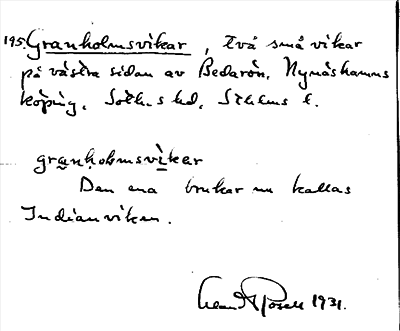 195. Granholmsvikar, två små vikar
på västra sidan av Bedarön, Nynäshamns
köping, Soth.s hd, Sthlms l.
granholmsvikar
Den ena brukar nu kallas
Indianviken.
1931.